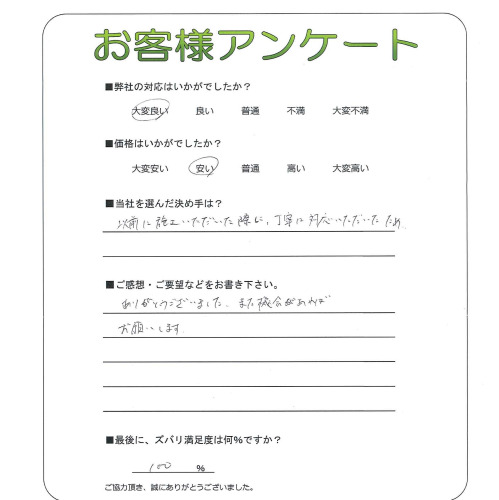 お客様アンケート
■弊社の対応はいかがでしたか？
大変良い 良い 普通 不満 大変不満
■価格はいかがでしたか？
大変安い 安い 普通 高い 大変高い
■当社を選んだ決め手は？
以前に施工いただいた際に、丁寧に対応いただいたため
■ご感想・ご要望などをお書き下さい。
ありがとうございました。また機会があれば
お願いします。
■最後に、ズバリ満足度は何％ですか？
100 ％
ご協力頂き、誠にありがとうございました。